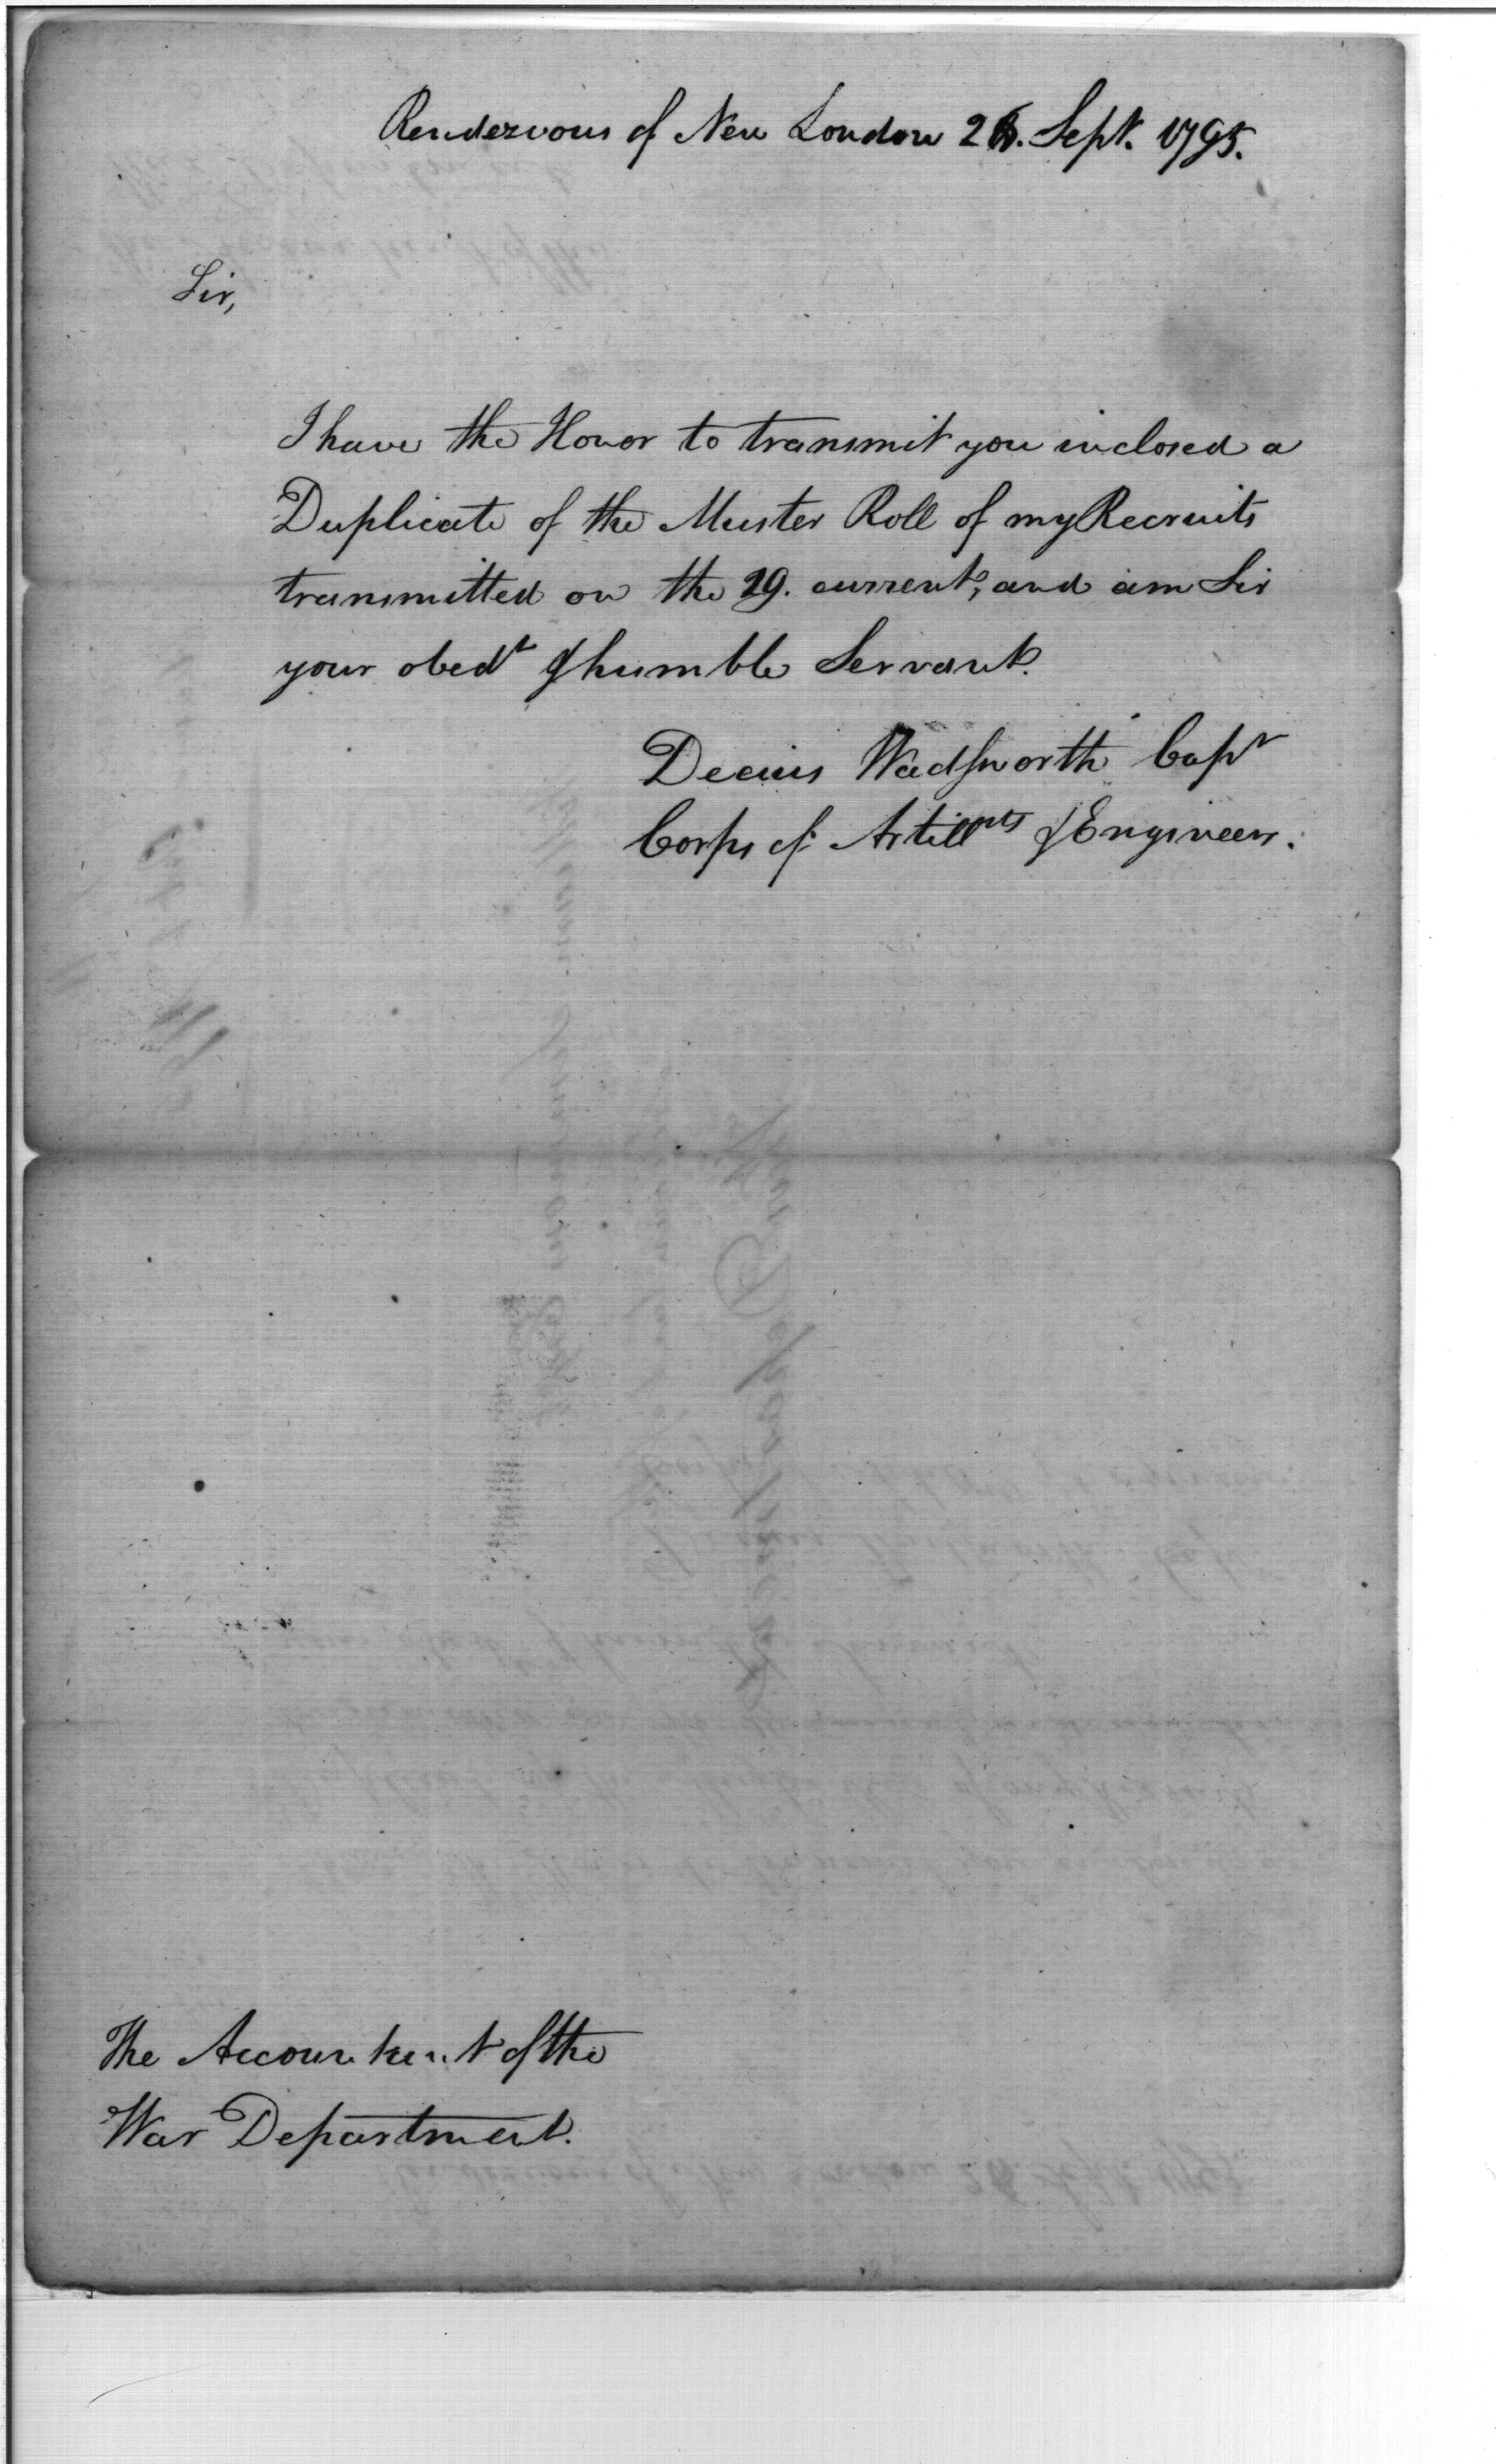 Rendezvous of New London 26. Sept. 1795.
Sir,
I have the Honor to transmit you inclosed a
Duplicate of the Muster Roll of my Recruits
transmitted on the 19. current, and am Sir
your obedt & humble Servant.
Decius Wadsworth Capt
Corps of Artillrts & Engineers.
The Accountant of the
War Department.